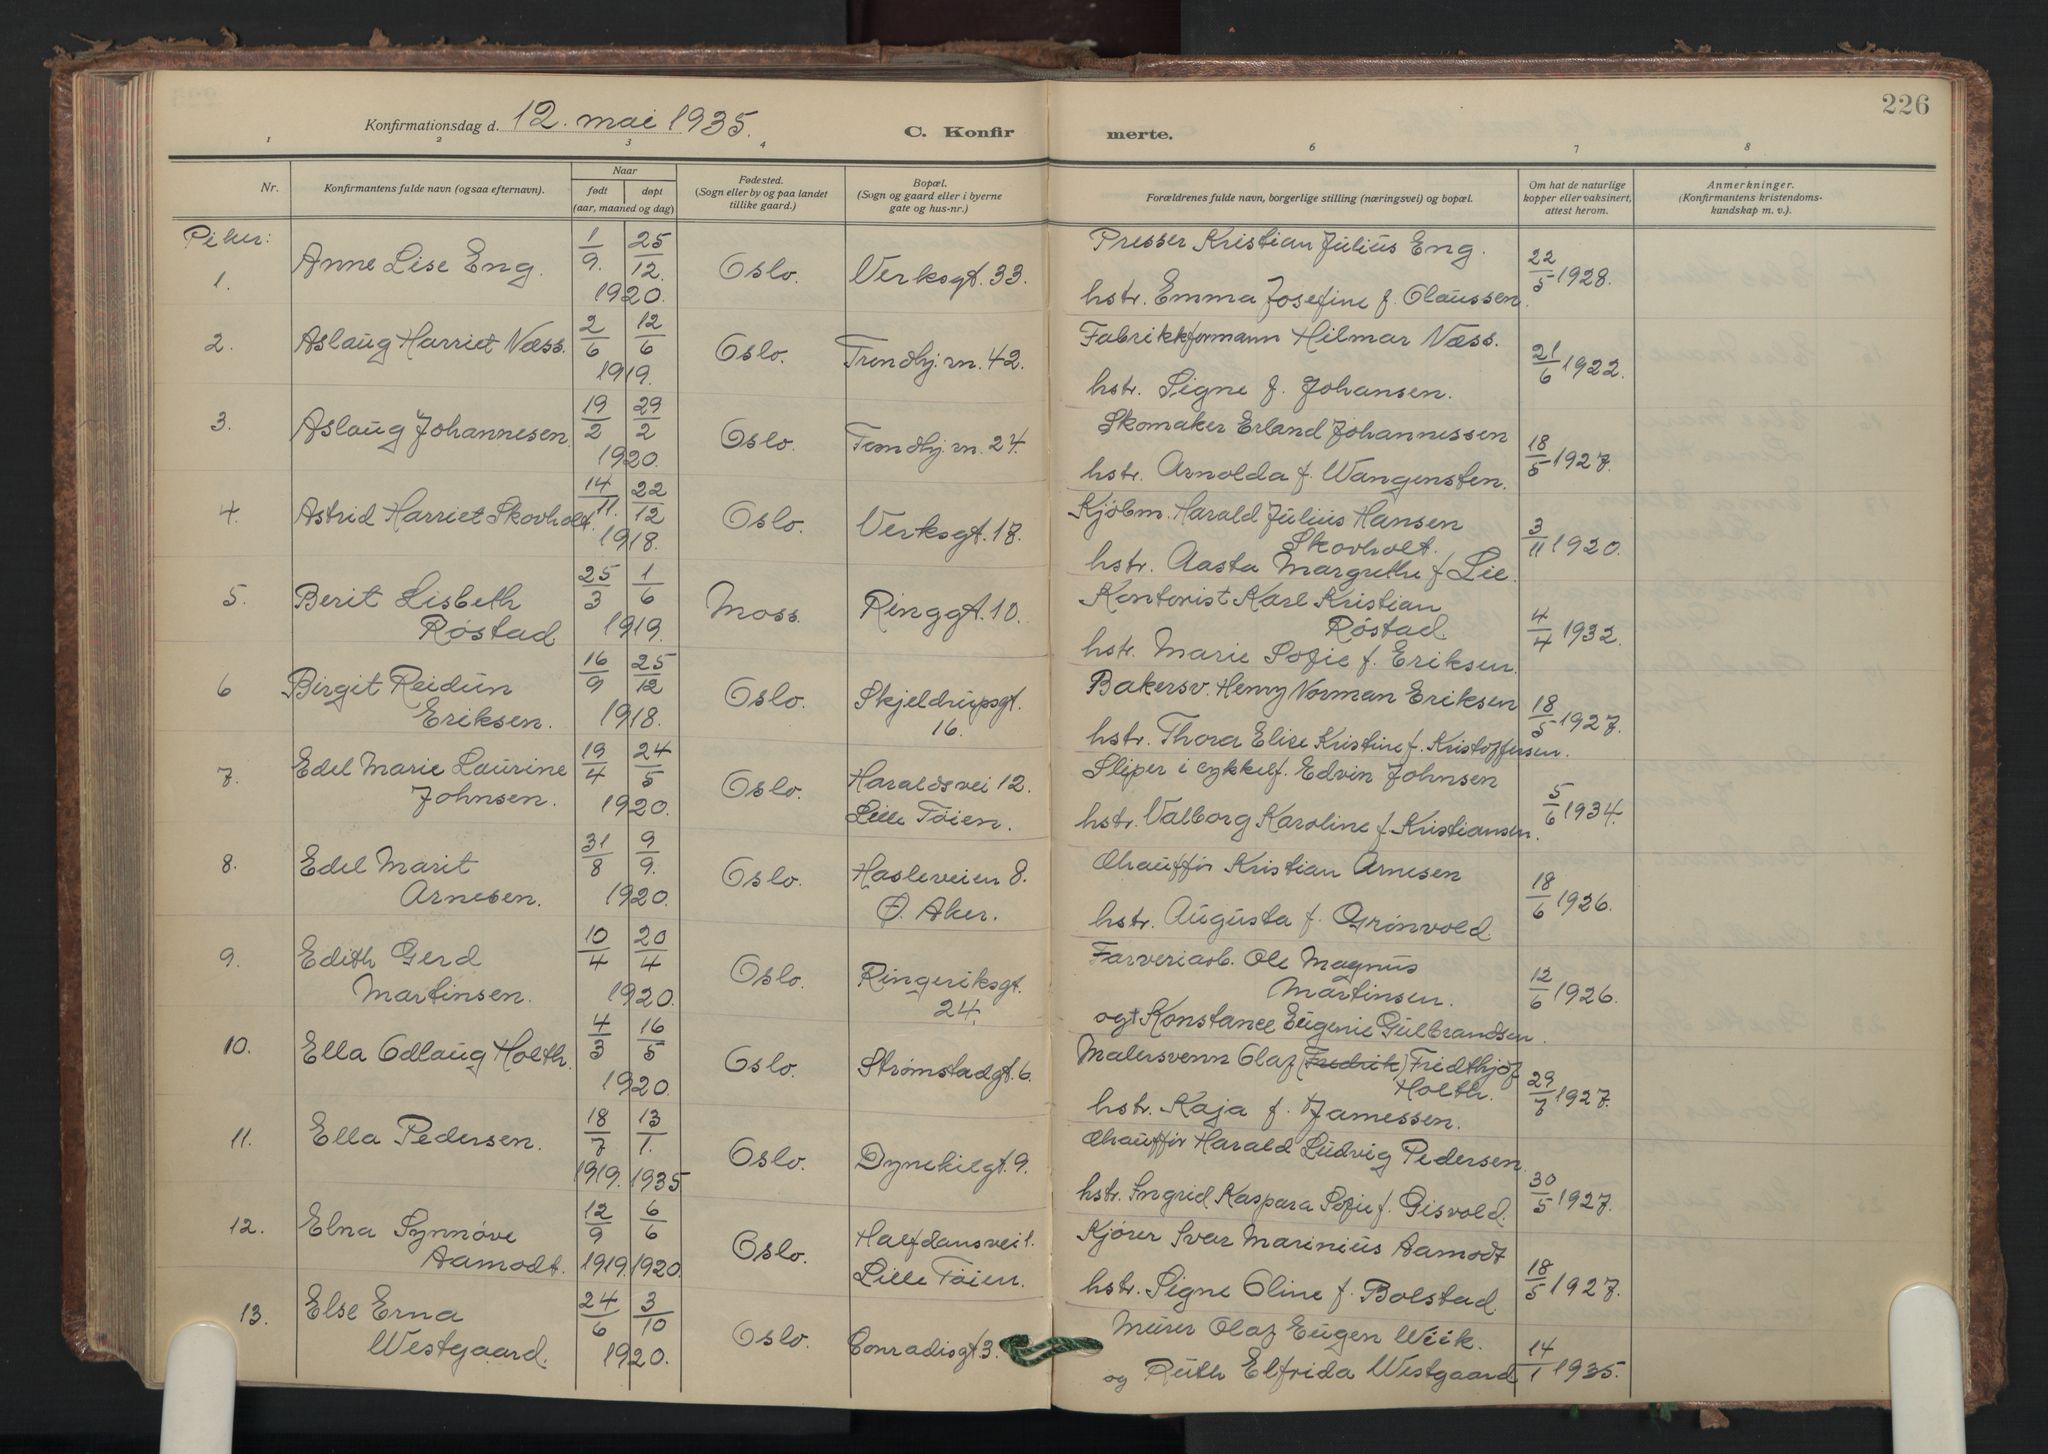 226
Konfirmationsdag d. 12. mai 1935.
C. Konfir merte.
1 2 3 4 6 7 8
Nr.
Konfirmantens fulde navn (ogsaa efternavn).
Naar
født døpt
(aar, maaned og dag)
Fødested.
(Sogn eller by og paa landet
tillike gaard.)
Bopæl.
(Sogn og gaard eller i byerne
gate og hus-nr.)
Forældrenes fulde navn, borgerlige stilling (næringsvei) og bopæl.
Om hat de naturlige
kopper eller vaksinert,
attest herom.
Anmerkninger.
(Konfirmantens kristendoms-
kundskap m. v.).
Piker:
1. Anne Lise Eng. 1/9. 25/12. 1920. Oslo. Verksgt. 33. Presser Kristian Julius Eng. 22/5 1928.
hstr. Emma Josefine f. Olaussen.
2. Aslaug Harriet Næss. 2/6 12/6 1919. Oslo. Trondhj.vn. 42. Fabrikkformann Hilmar Næss. 21/6 1922.
hstr. Signe f. Johansen.
3. Aslaug Johannesen. 19/2 29/2 1920. Oslo. Trondhj.vn. 24. Skomaker Erland Johannessen 18/5 1927.
hstr. Arnolda f. Wangensten.
4. Astrid Harriet Skovholt. 14/11. 22/12 1918. Oslo. Verksgt. 17. Kjøbm. Harald Julius Hansen
Skovholt. 3/11 1920.
hstr. Aasta Margrethe f. Lie.
5. Berit Lisbeth
Røstad 25/3 1/6 1919. Moss. Ringgt. 10. Kontorist Karl Kristian
Røstad. 4/4 1932.
hstr. Marie Sofie f. Eriksen.
6 Birgit Reidun
Eriksen. 16/9 25/12 1918. Oslo. Skjeldrupsgt.
16. Bakersv. Henry Norman Eriksen 18/5 1927.
hstr. Thora Elise Kristine f. Kristoffersen.
7. Edel Marie Laurine
Johnsen. 19/4 24/5 1920. Oslo. Haraldsvei 12.
Lille Tøien. Sliper i cykkelf. Edvin Johnsen 5/6 1934.
hstr. Valborg Karoline f. Kristiansen.
8. Edel Marit
Arnesen. 31/8 9/9. 1920. Oslo. Hasleveien 8.
Ø. Aker. Chauffør Kristian Arnesen 18/6 1926.
hstr. Augusta f. Grønvold.
9. Edith Gerd
Martinsen. 10/4 20/4 1920. Oslo. Ringeriksgt.
24. Farveriarb. Ole Magnus
Martinsen. 12/6 1926.
og Konstance Eugenie Gulbrandsen.
10. Ella Odlaug Holth. 4/3 16/5 1920. Oslo. Strømstadgt. 6. Malersvenn Olaf (Fredrik) Fridthjof
Holth. 29/7 1927.
hstr. Kaja f. Jamessen.
11. Ella Pedersen. 18/7 13/1. 1919. 1935 Oslo. Dynekilgt. 9. Chauffør Harald Ludvig Pedersen. 30/5 1927.
hstr. Ingrid Kaspara Sofie f. Gisvold.
12. Elna Synnøve
Aamodt. 12/9 6/6 1919. 1920. Oslo. Halfdansvei 1.
Lille Tøien. Kjører Ivar Marinius Aamodt 18/5 1927.
hstr. Signe Oline f. Bolstad.
13. Else Erna
Westgaard. 24/6 3/10 1920. Oslo. Conradisgt. 3. Murer Olaf Eugen Wiik. 14/1 1935.
og Ruth Elfrida Westgaard